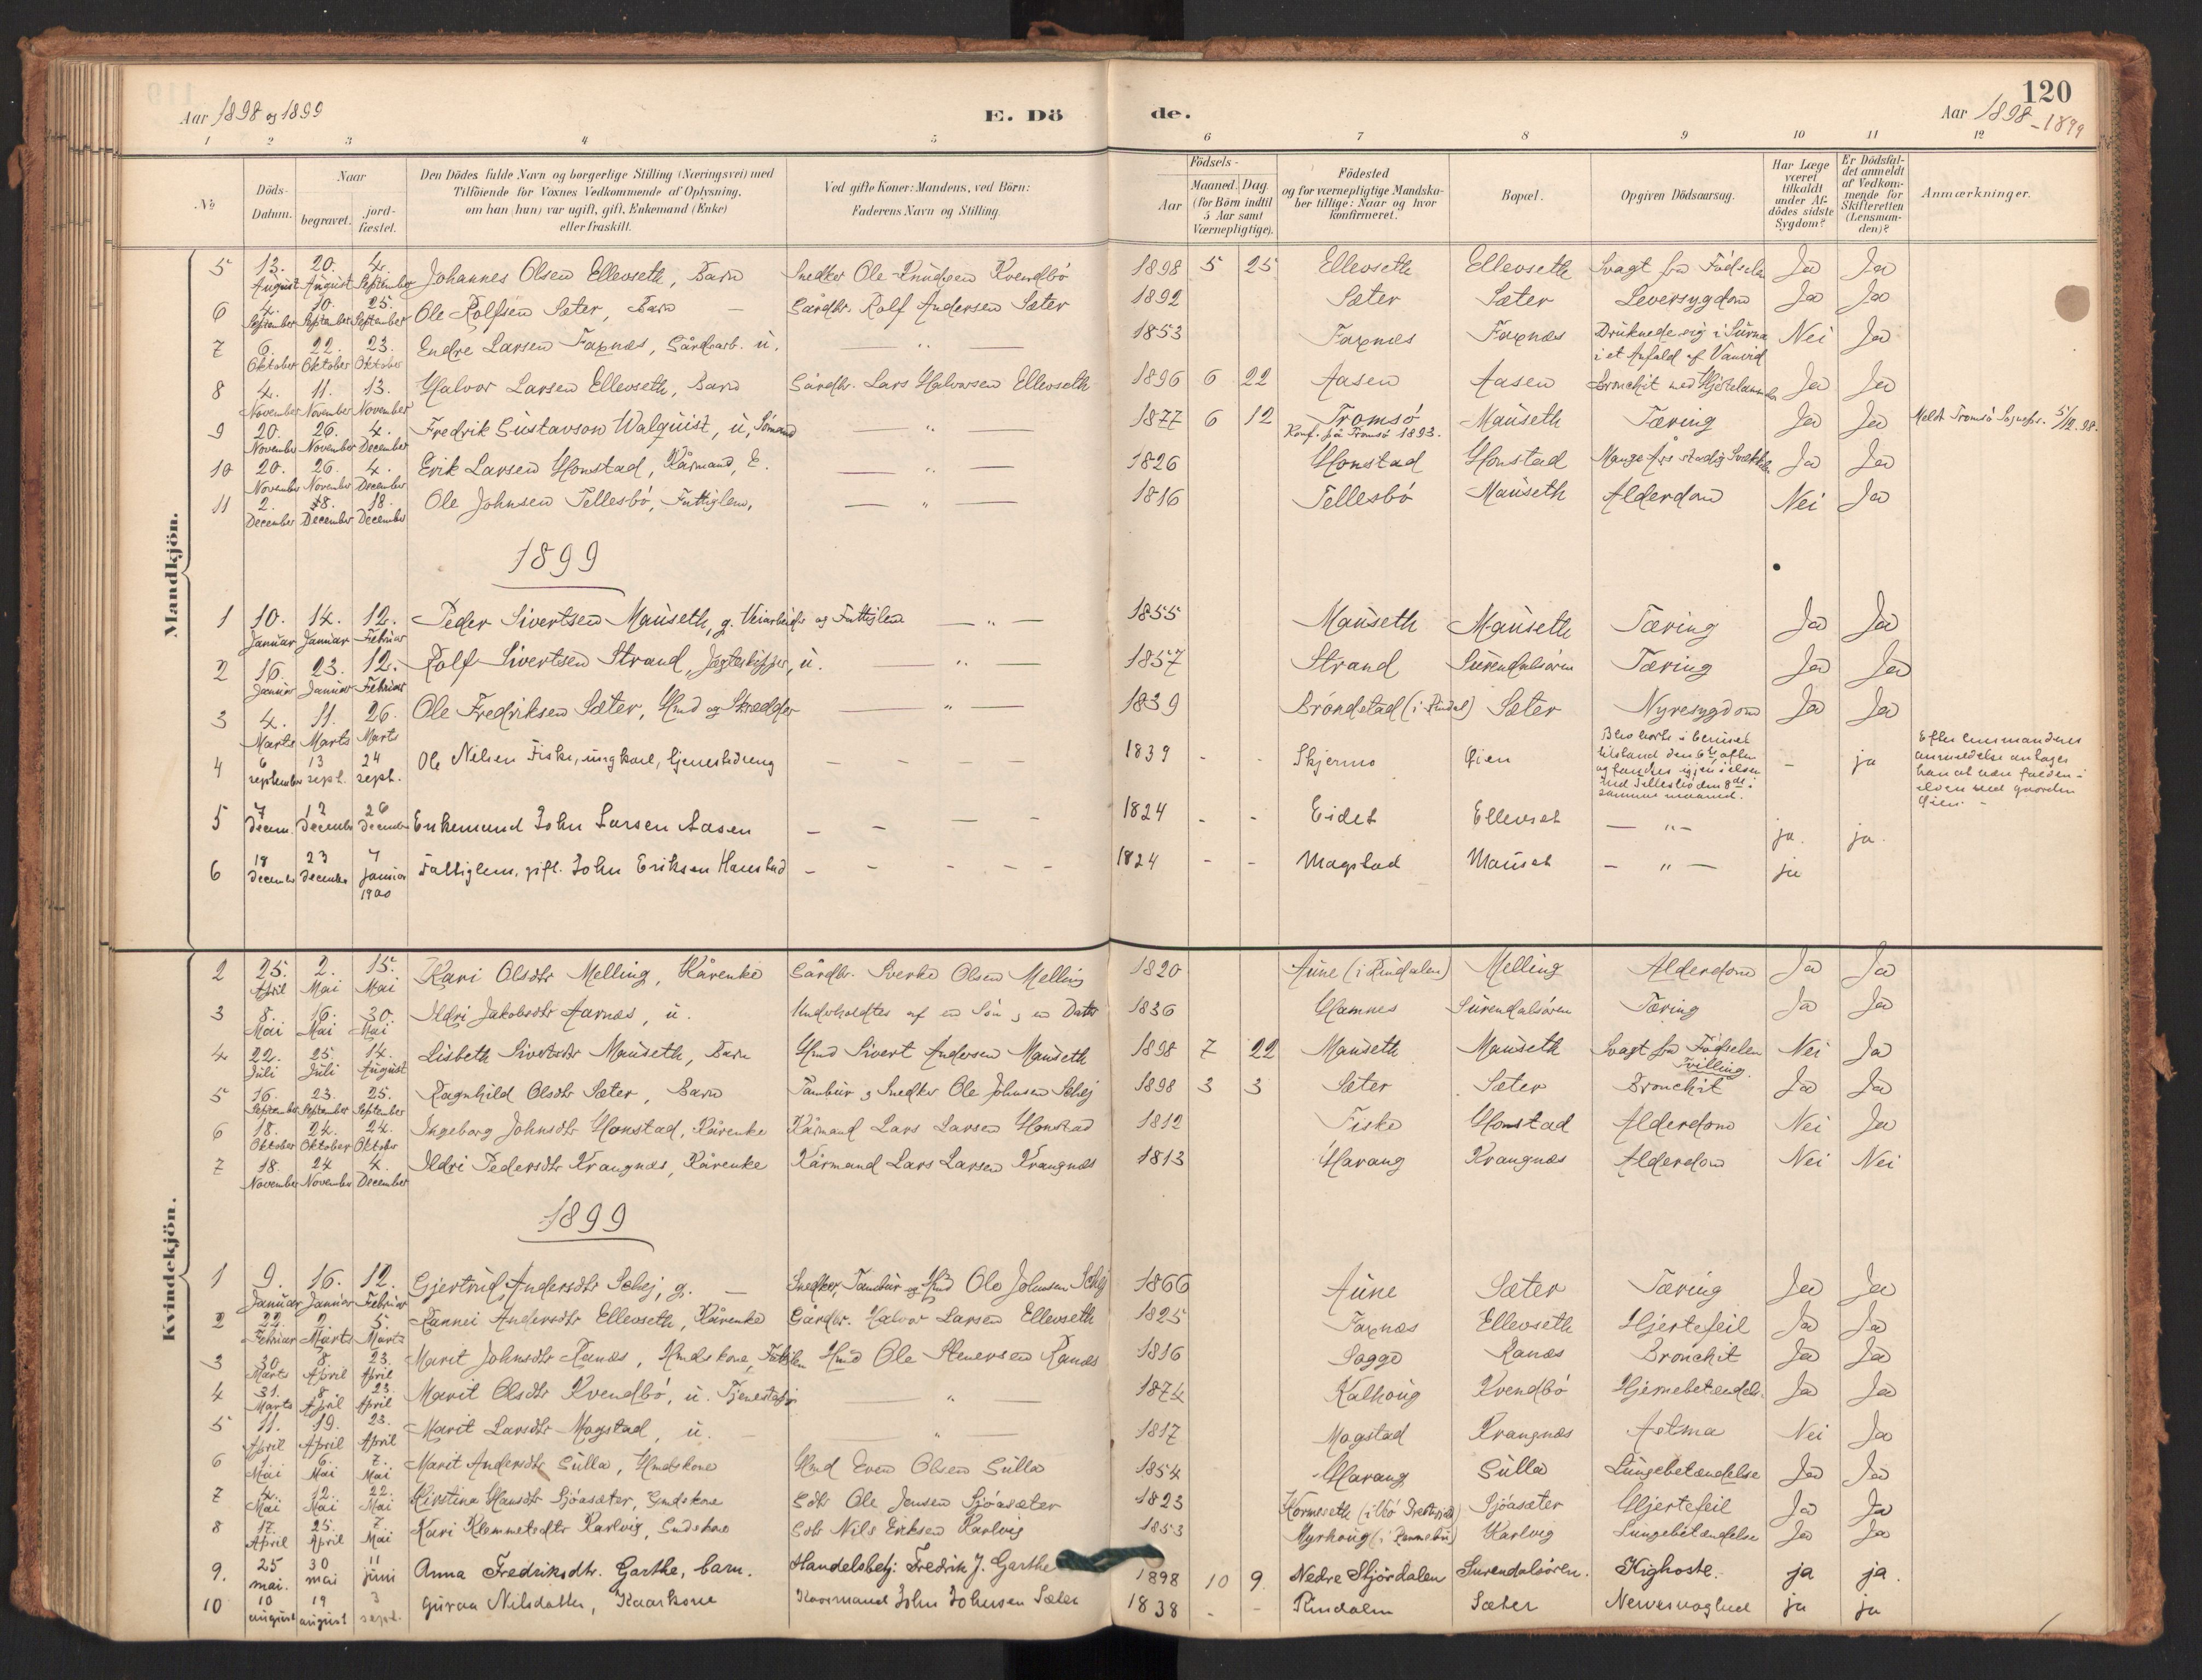 Aar 1898 og 1899
E. Dö de.
120
Aar 1898 - 1899
1 2 3 4 5 6 7 8 9 10 11 12
No
Döds-Datum.
Naar
begravet.
jord-fæstet.
Den Dödes fulde Navn og borgerlige Stilling (Næringsvei) med
Tilföiende for Voxnes Vedkommende af Oplysning,
om han (hun) var ugift, gift, Enkemand (Enke)
eller fraskilt.
Ved gifte Koner: Mandens, ved Börn:
Faderens Navn og Stilling.
Födsels-
Aar
Maaned. Dag
(for Börn indtil
5 Aar samt
Værnepligtige).
Födested
og for værnepligtige Mandska-
ber tillige: Naar og hvor
konfirmeret.
Bopæl.
Opgiven Dödsaarsag.
Har Læge
været
tilkaldt
under Af-
dödes sidste
Sygdom?
Er Dödsfal-
det anmeldt
af Vedkom-
mende for
Skifteretten
(Lensman-
den)?
Anmærkninger.
Mandkjön.
5 13. August 20. August 4. September Johannes Olsen Ellevseth, Barn Snedker Ole Knudsen Kvendbö 1898 5 25 Ellevseth Ellevseth Svagt fra Födselen Ja Ja
6 4. September 10. September 25. September Ole Rolfsen Sæter, Barn — Gårdbr. Rolf Andersen Sæter 1892 Sæter Sæter Leversygdom Ja Ja
7 6. Oktober 22. Oktober 23. Oktober Endre Larsen Faxnæs, Gårdsarb. u. — " — 1853 Faxnæs Faxnæs Druknede sig i Surna i et Anfald af Vanvid Nei Ja
8 4. November 11. November 13. November Halvor Larsen Ellevseth, Barn Gårdbr. Lars Halvorsen Ellevseth 1896 6 22 Aasen Aasen Bronchit med Ja Ja
9 20. November 26. November 4. December Fredrik Gustavson Walquist, u, Sömand — " — 1877 6 12 Tromsö Konf. på Tromsö 1893. Mauseth Tæring Ja Ja Meldt Tromsö Sognepr. 5/12.98.
10 20. November 26. November 4. December Erik Larsen Honstad, Kårmand, E. — " — 1826 Honstad Honstad Mange Års stadig Ja Ja
11 2. December 8. December 18. December Ole Johnsen Tellesbö, Fattiglem, — " — 1816 Tellesbö Mauseth Alderdom Nei Ja
1899
1 10. Januar 14. Januar 12. Februar Peder Sivertsen Mauseth, g. Veiarbeider og Fattiglem — " — 1855 Mauseth Mauseth Tæring Ja Ja
2 16. Januar 23. Januar 12. Februar Rolf Sivertsen Strand, Jægteskipper, u. — " — 1857 Strand Surendalsören Tæring Ja Ja
3 4. Marts 11. Marts 26. Marts Ole Fredriksen Sæter, Hmd og Skrædder — " — 1839 Bröndstad (i Rindal) Sæter Nyresygdom Ja Ja
4 6 september 13 sept. 24 sept. Ole Nilsen Fiske, ungkarl, tjenestedreng — — — — 1839 - - Skjermo Öien Blev borte i beruset tilstand den 6te aften og fandtes igjen i elven ved Tellesbö den 8de i samme maaned. — ja Efter lensmandens anmeldelse antages han at være falden i elven ved gaarden Öien. -
5 7 Decem. 12 December 26 December Enkemand John Larsen Aasen — — — — 1824 - - Eidet Ellevset — " — ja. ja.
6 18 December 23 December 7 januar 1900 Fattiglem, gift. John Eriksen Honstad — — — — — 1824 - - Magstad Mauset — " — ja
Kvindekjön.
2 25. April 2. Mai 15. Mai Kari Olsdtr Melling, Kårenke Gårdbr. Sverke Olsen Melling 1820 Aune (i Rindalen) Melling Alderdom Ja Ja
3 8. Mai 16. Mai 30. Mai Ildri Jakobsdtr Aarnæs, u. Underholdtes af en Sön og en Datter 1836 Hamnes Surendalsören Tæring Ja Ja
4 22. Juli 25. Juli 14. August Lisbeth Sivertsdtr Mauseth, Barn Hmd Sivert Andersen Mauseth 1898 7 22 Mauseth Mauseth Svagt fra Födselen Tvilling. Nei Ja
5 16. September 23. September 25. September Ragnhild Olsdtr Sæter, Barn Tambur og Snedker Ole Johnsen Schei 1898 3 3 Sæter Sæter Bronchit Ja Ja
6 18. Oktober 24. Oktober 24. Oktober Ingeborg Johnsdtr Honstad, Kårenke Kårmand Lars Larsen Honstad 1812 Fiske Honstad Alderdom Nei Ja
7 18. November 24 November 4. December Ildri Pedersdtr Krangnæs, Kårenke Kårmand Lars Larsen Krangnæs 1813 Harang Krangnæs Alderdom Nei Nei
1899
1 9. Januar 16. Januar 12. Februar Gjertrud Andersdtr Schej, g. — Snedker, Tambur og Hmd Ole Johnsen Schej 1866 Aune Sæter Tæring Ja Ja
2 22. Februar 2. Marts 5. Marts Rannei Andersdtr Ellevseth, Kårenke Gårdbr. Halvor Larsen Ellevseth 1825 Faxnæs Ellevseth Hjertefeil Ja Ja
3 30 Marts 8. April 23. April Marit Johnsdtr Ranæs, Hmdskone, Fattiglem Hmd Ole Stenersen Ranæs 1816 Sogge Ranæs Bronchit Ja Ja
4 31. Marts 8 April 23 April Marit Olsdtr Kvendbö, u. Tjenestepige — " — 1874 Kalhoug Kvendbö Hjernebetændelse Ja Ja
5 11. April 19. April 23. April Marit Larsdtr Magstad, u. — " — 1817 Magstad Krangnæs Astma Nei Ja
6 1. Mai 6. Mai 7. Mai Marit Andersdtr Sulla, Hmdskone Hmd Even Olsen Sulla 1854 Harang Sulla Lungebetændelse Ja Ja
7 4. Mai 12. Mai 22. Mai Kirstina Hansdtr Sjöasæter, Gmdskone Gdbr Ole Jensen Sjöasæter 1823 Kornseth (i Bö Prestegjeld) Sjöasæter Hjertefeil Ja Ja
8 17. April 25. April 7. Mai Kari Klemmetsdtr Karlvig, Gmdskone Gdbr Nils Eriksen Karlvig 1853 Myrhoug (i Rennebu) Karlvig Lungebetændelse Ja Ja
9. 25 mai. 30 mai 11 juni Anna Fredriksdtr. Garthe, barn. Handelsbetj: Fredrik J. Garthe 1898 10 9. Nedre Stjördalen Surendalsören. Kighoste. ja ja.
10 10 august 19 august 3 sept. Guraa Nilsdatter, Kaarkone Kaarmand John Johnsen Sæter 1838 - - Rindalen Sæter Nervesvaghed ja ja